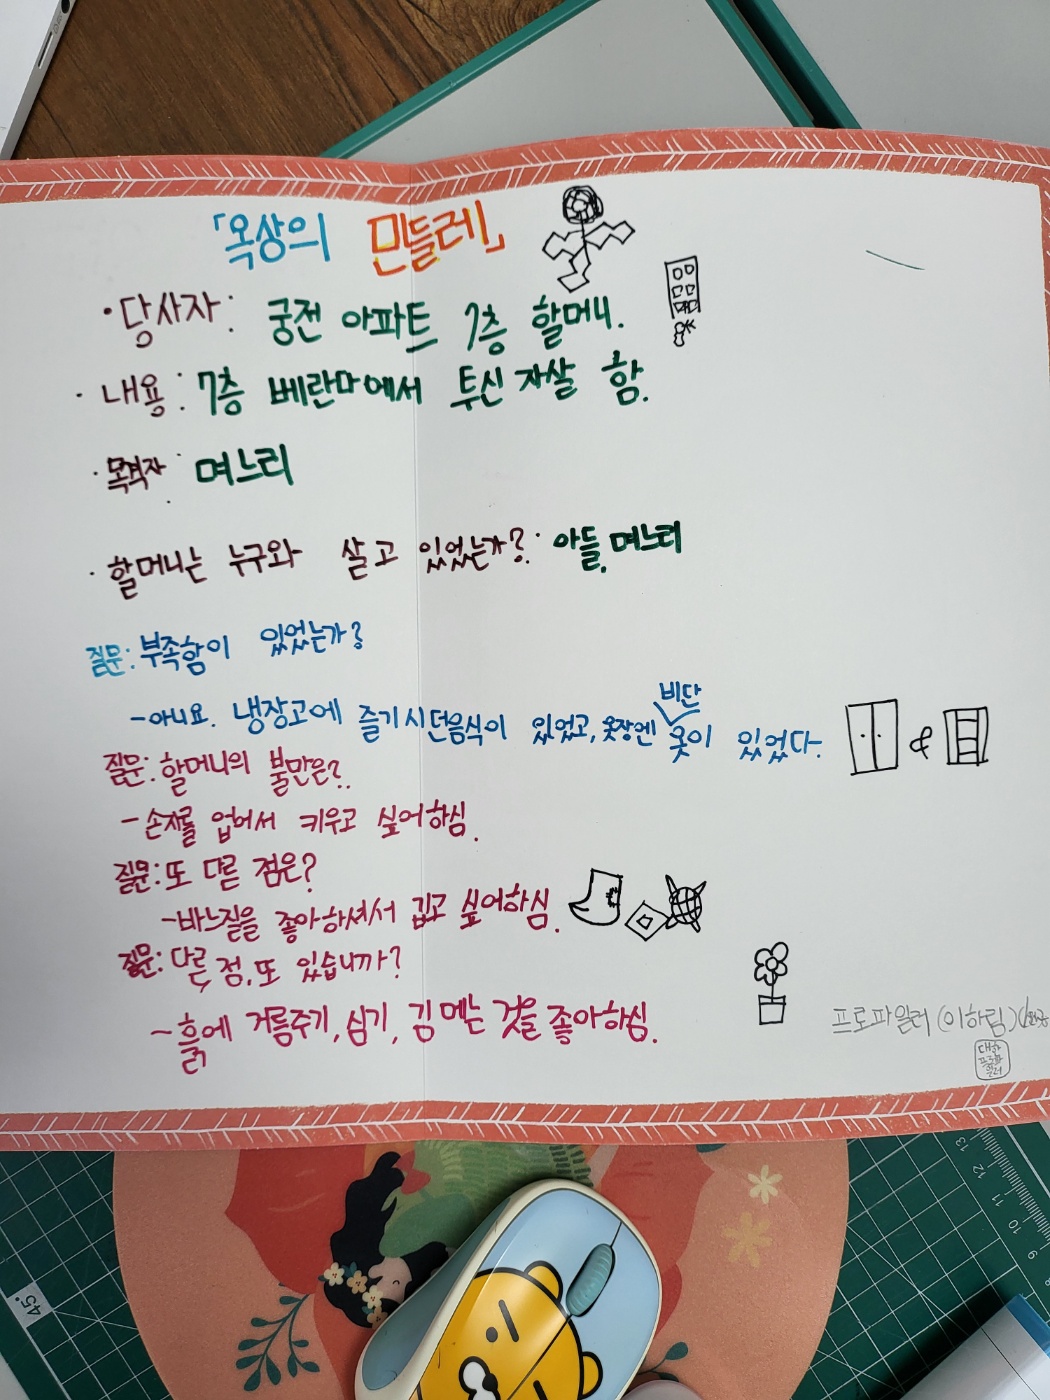 「옥상의 민들레」
· 당사자: 궁전 아파트 7층 할머니.
· 내용: 7층 베란다에서 투신 자살 함.
· 목격자: 며느리
· 할머니는 누구와 살고 있었는가?: 아들, 며느리
질문: 부족함이 있었는가?
비단
-아니요. 냉장고에 즐기시던음식이 있었고, 옷장엔 옷이 있었다.
&
질문: 할머니의 불만은?
-손자를 업어서 키우고 싶어하심.
질문: 또 다른 점은?
-바느질을 좋아하셔서 깁고 싶어하심.
질문: 다른 점, 또 있습니까?
-흙에 거름주기, 심기, 김 메는 것을 좋아하심.
프로파일러 (이하림)
13
12
11
10
9
45°